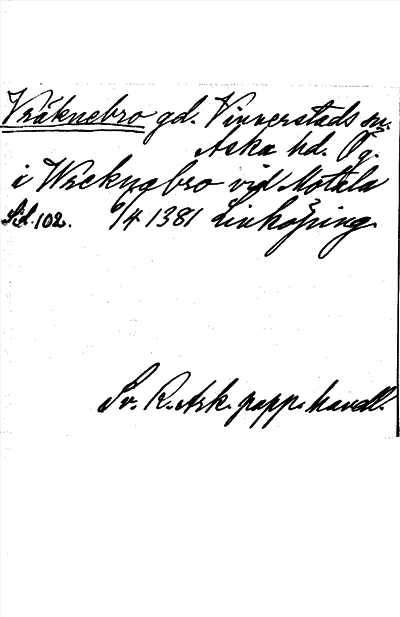 Vräknebro gd. Vinnerstads sn.
Aska hd. Ög.
i Wreknabro vid Motala
Sid. 102. 6/4 1381 Linköping
Sv. R. Ark. papp. handl.